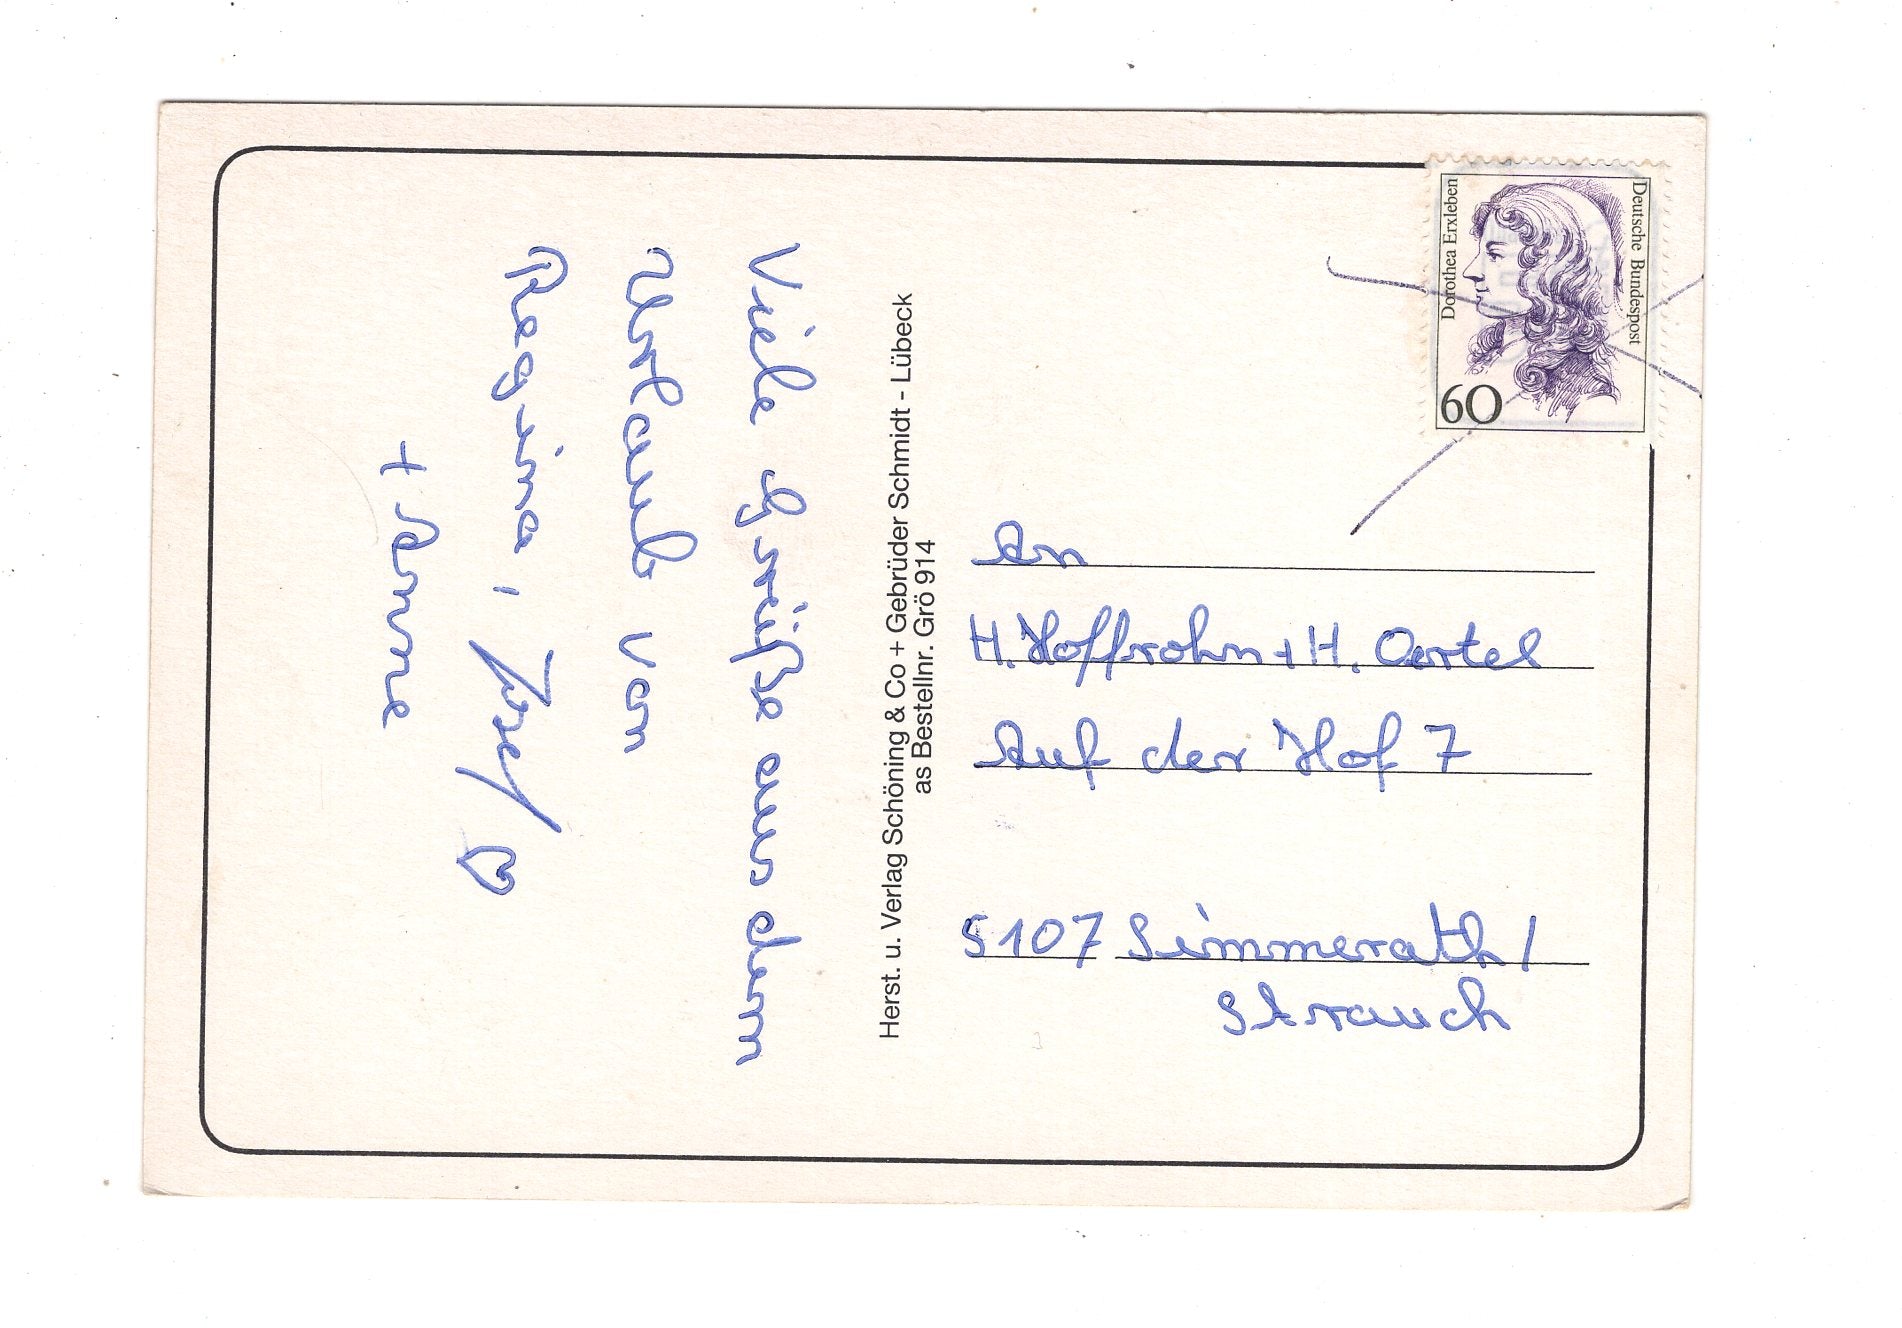 Viele Grüße aus dem
Urlaub von
Regina, Josef
+ Anne
Herst. u. Verlag Schöning & Co + Gebrüder Schmidt - Lübeck
as Bestellnr. Grö 914
Deutsche Bundespost
Dorothea Erxleben
60
An
H. Hoffrohn + H. Oertel
Auf der Hof 7
5107 Simmerath /
Strauch